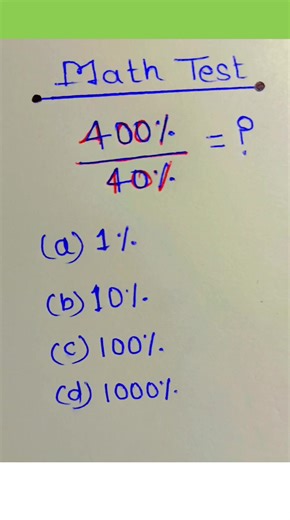 Math Test
400%
40%
= ?
(a) 1%
(b) 10%
(c) 100%
(d) 1000%